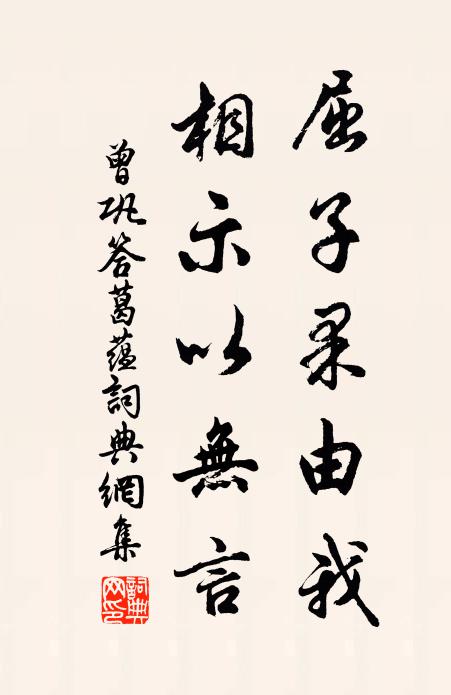 屈子果由我
相示以無言
曾巩答葛蕴詞典網集
詞典网印